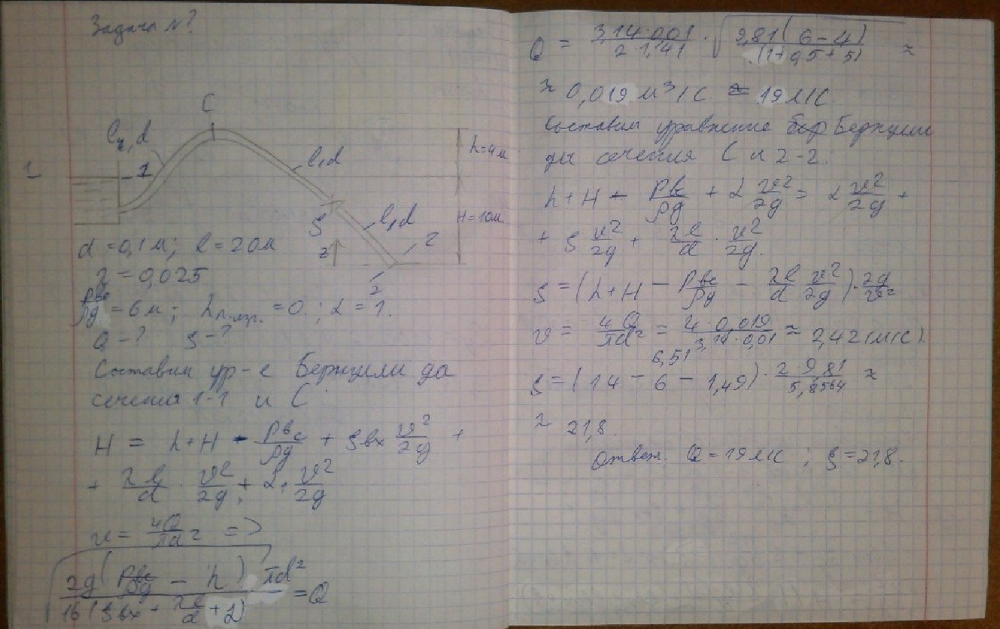 Задача №?
C
l₂, d
1
- 1
l, d
h=4м
H=10м
l, d
ς
z
2
2
d = 0,1 м; l = 20м
λ = 0,025
Pвс/ρg = 6м; hп.кр. = 0; α = 1.
Q - ? ς - ?
Составим ур-е Бернулли для
сечения 1-1 и C
H = h+H - Pвс/ρg + ςвх v²/2g +
+ λl/d · v²/2g + α · v²/2g
v = 4Q/πd² =>
√(2g(Pвс/ρg - h) / 16(ςвх + λl/d + α)) πd² = Q
Q = 3,14·0,01/2·1,141 · √(9,81(6-4)/(1+0,5+5)) ≈
≈ 0,019 м³/с ≈ 19 л/с
Составим уравнение Бернулли
для сечения C и 2-2.
h+H - Pвс/ρg + α v²/2g = α v²/2g +
+ ς v²/2g + λl/d · v²/2g.
ς = (h+H - Pвс/ρg - λl/d v²/2g) · 2g/v²
v = 4Q/πd² = 4·0,019/3,14·0,01 ≈ 2,42 (м/с).
6,51
ς = (14 - 6 - 1,49) · 2·9,81/5,8564 ≈
≈ 21,8.
Ответ: Q = 19 л/с; ς = 21,8.